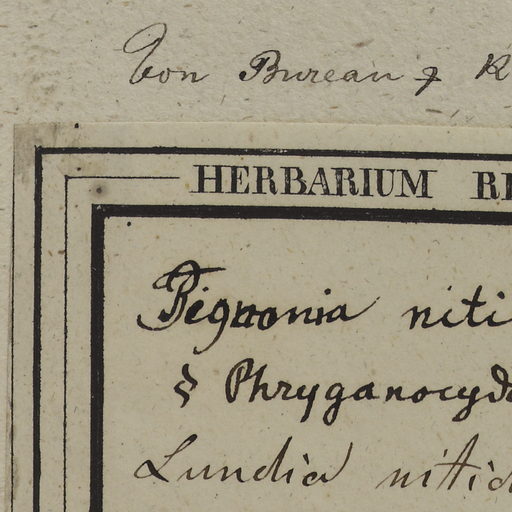 von Bureau & K
HERBARIUM RE
Bignonia niti
§ Phryganocyd
Lundia nitid